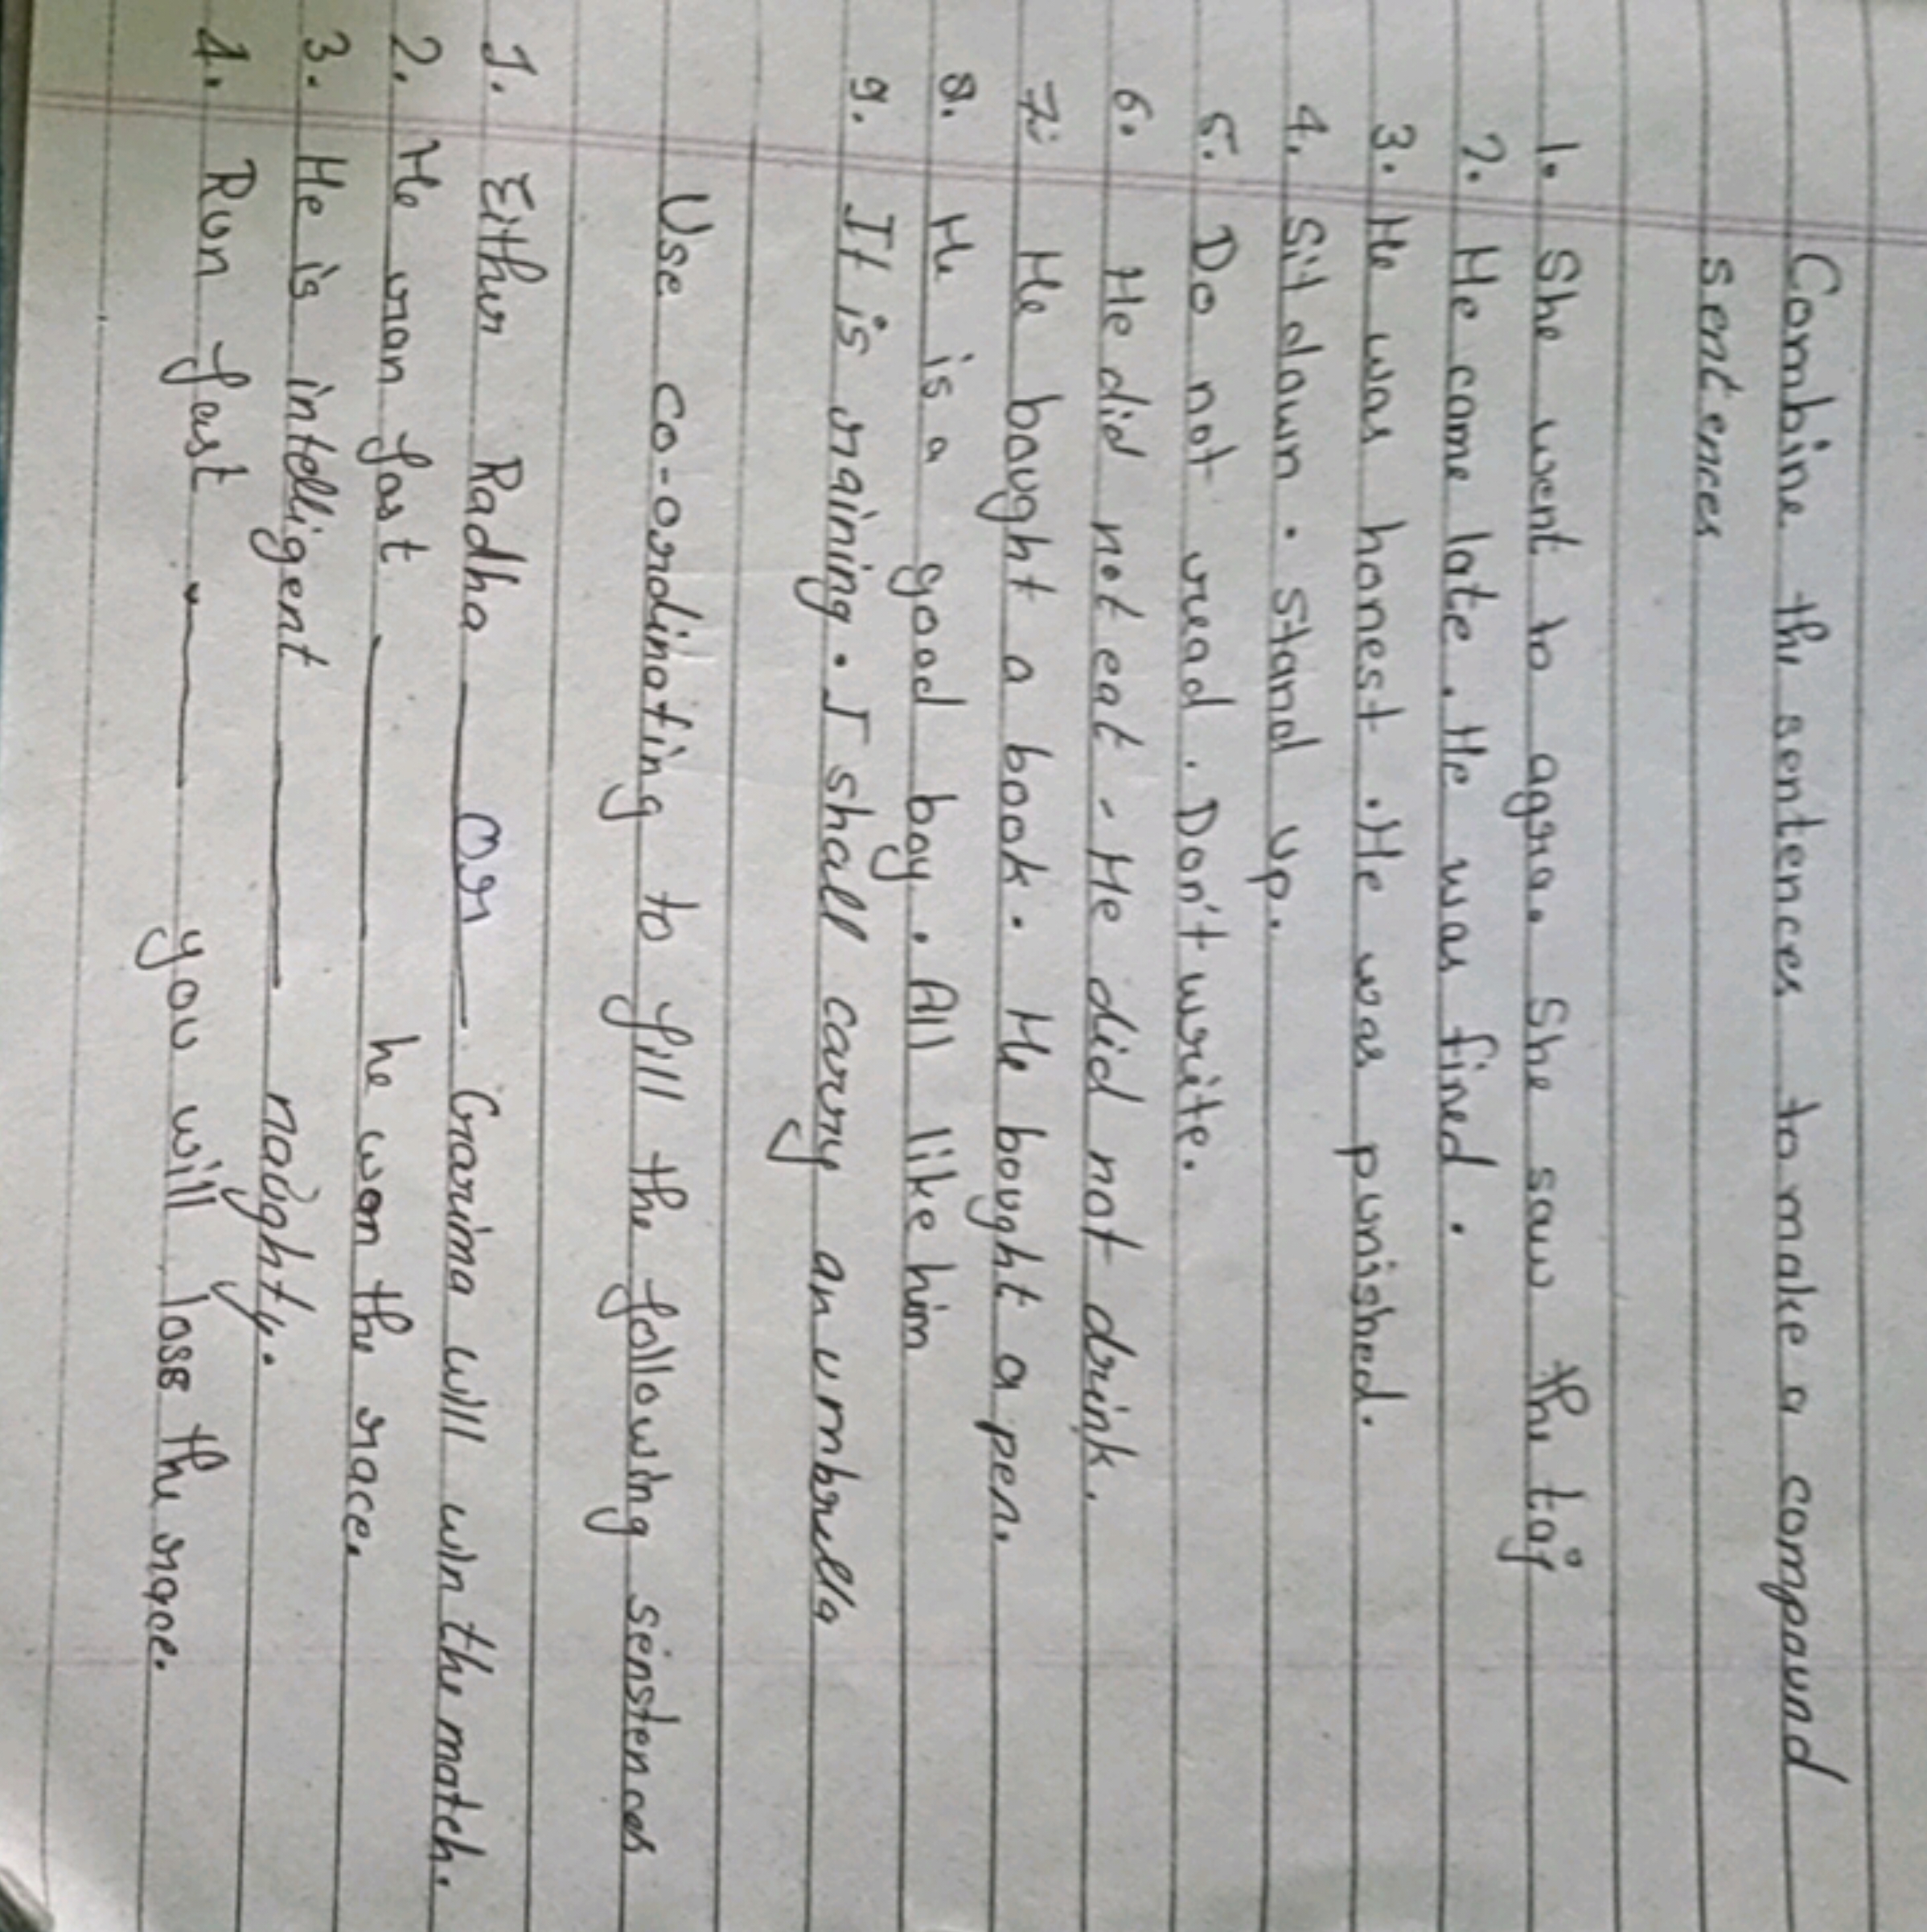 Combine the sentences to make a compound
sentences
1. She went to agra. She saw the taj
2. He came late. He was fined.
3. He was honest. He was punished.
4. Sit down. stand up.
5. Do not read. Don't write.
6. He did not eat - He did not drink.
7. He bought a book. He bought a pen.
8. He is a good boy. All like him
9. It is raining. I shall carry an umbrella
Use co-ordinating to fill the following senstences
1. Either Radha — or — Garima will win the match.
2. He ran fast ——— he won the race.
3. He is intelligent ——— naughty.
4. Run fast ——— you will loss the race.